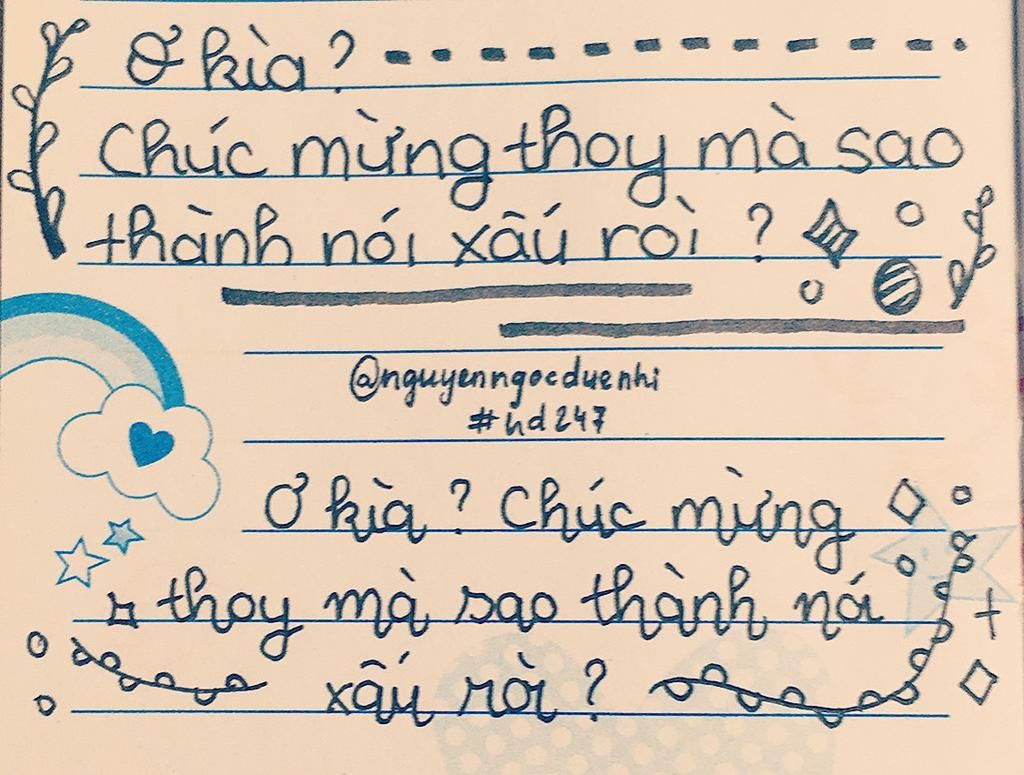 Ơ kìa?
Chúc mừng thoy mà sao
thành nói xấu ròi?
@nguyenngocduenhi
#hd247
Ơ kìa? Chúc mừng
thoy mà sao thành nói
xấu ròi?